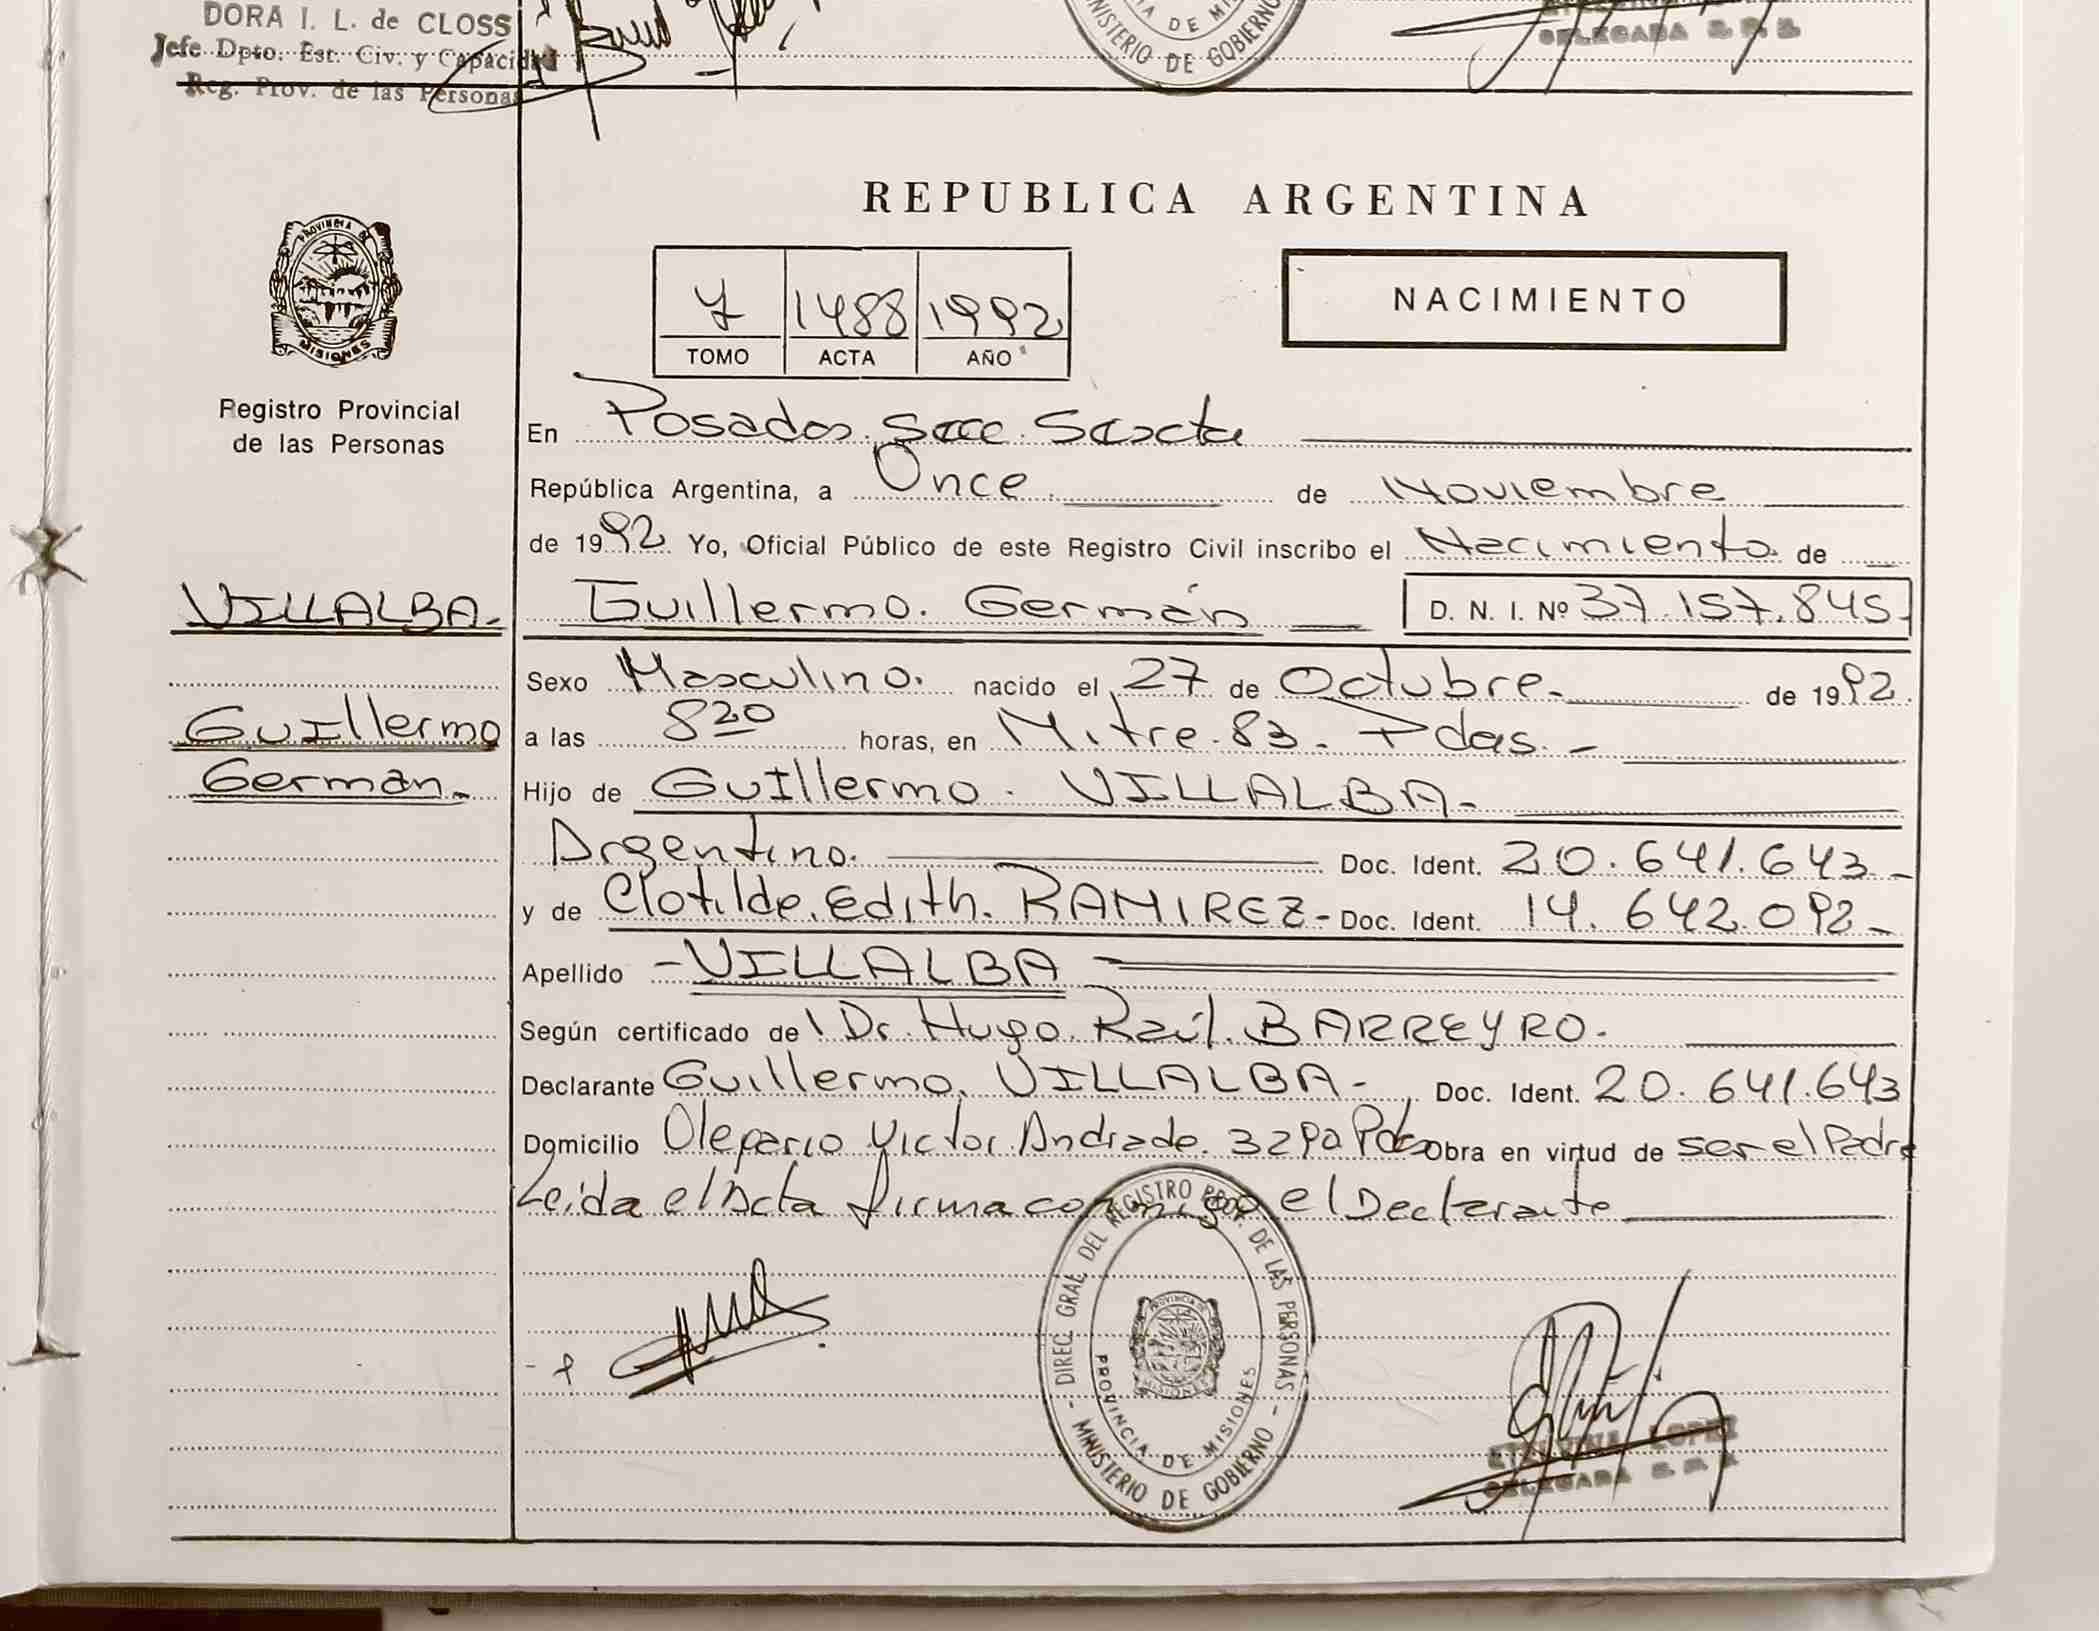 DORA I. L. de CLOSS
Jefe Dpto. Est. Civ. y Capacidad
Reg. Prov. de las Personas
MINISTERIO DE GOBIERNO
DELEGADA
REPUBLICA ARGENTINA
PROVINCIA DE
MISIONES
Registro Provincial
de las Personas
Y 1488 1992
TOMO ACTA AÑO
NACIMIENTO
En Posadas Secc. Sexta
República Argentina, a Once de Noviembre
de 1992 Yo, Oficial Público de este Registro Civil inscribo el Nacimiento de
VILLALBA.
Guillermo
Germán.
Guillermo. Germán D. N. I. Nº 37.157.845
Sexo Masculino. nacido el 27 de Octubre. de 1992.
a las 8 20 horas, en Mitre. 83. Pdas. -
Hijo de Guillermo. VILLALBA-
Argentino. Doc. Ident. 20.641.643-
y de Clotilde. Edith. RAMIREZ- Doc. Ident. 14.642.092-
Apellido -VILLALBA
Según certificado del Dr. Hugo. Raúl. BARREYRO.
Declarante Guillermo. VILLALBA-, Doc. Ident. 20.641.643
Domicilio Olegario Victor. Andrade. 3290 Pdas Obra en virtud de ser el Padre
Leida el Acta firma conmigo el Declarante
DIREC. GRAL. DEL REGISTRO PROV. DE LAS PERSONAS
MINISTERIO DE GOBIERNO
PROVINCIA DE MISIONES
PROVINCIA DE
MISIONES
LOPEZ
DELEGADA